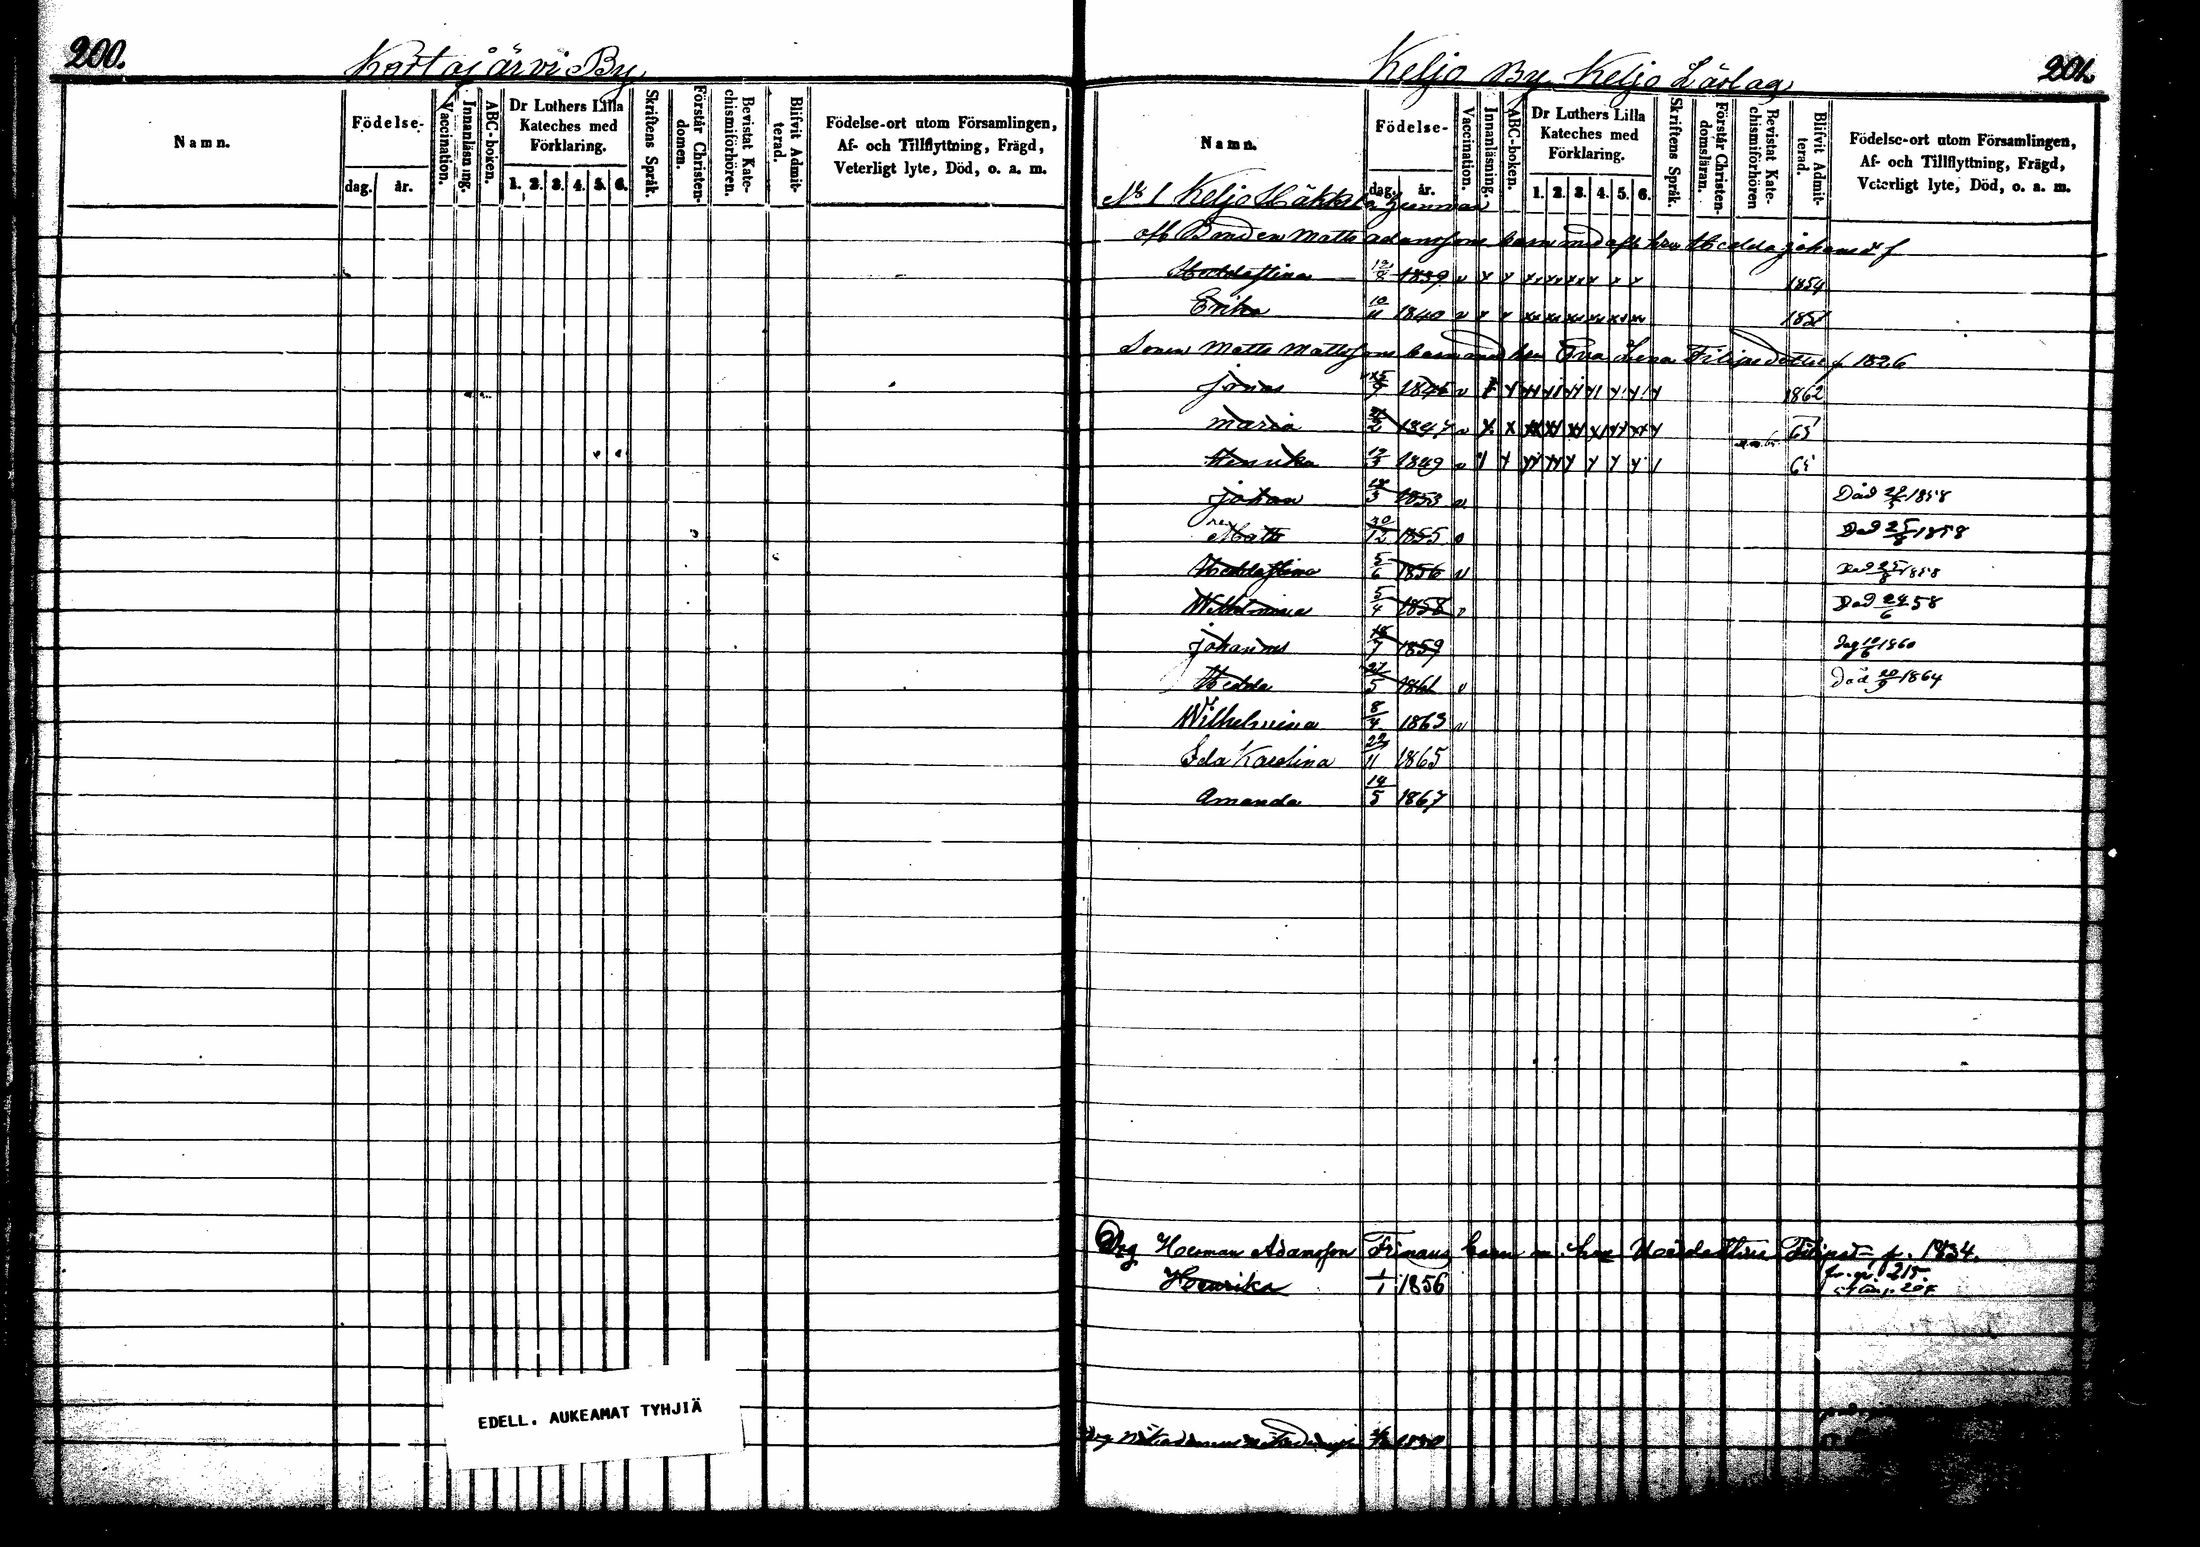 200.
Kortajärvi By
Namn.
Födelse-
dag.
år.
Vaccination.
Innanläsning.
ABC-boken.
Dr Luthers Lilla
Kateches med
Förklaring.
1. 2. 3. 4. 5. 6.
Skriftens Språk.
Förstår Christen-
domen.
Bevistat Kate-
chismiförhören.
Blifvit Admit-
terad.
Födelse-ort utom Församlingen,
Af- och Tillflyttning, Frägd,
Veterligt lyte, Död, o. a. m.
EDELL. AUKEAMAT TYHJIÄ
Keljo By Keljo Läslag
201.
Namn.
Födelse-
dag.
år.
Vaccination.
Innanläsning.
ABC-boken.
Dr Luthers Lilla
Kateches med
Förklaring.
1. 2. 3. 4. 5. 6.
Skriftens Språk.
Förstår Christen-
domsläran.
Bevistat Kate-
chismiförhören
Blifvit Admit-
terad.
Födelse-ort utom Församlingen,
Af- och Tillflyttning, Frägd,
Veterligt lyte, Död, o. a. m.
No 1 Keljo
Bonden Matts Adamssons barn med Hedda
Heddastina 12/8 1839 v 1854
Erika 10/11 1840 v 1857
Sonen Matts Mattssons barn med Eva Lena Filipsdotter f 1826
Jonas 1846 v 1862
Maria 1847 v 65
Henrika 12/3 1849 v 65
Johan 18/3 1853 v Död 1858
Matts 20/12 1855 v Död 25/8 1858
Heddastina 5/6 1856 v Död 25/8 1858
Wilhelmina 5/4 1858 v Död 24/6 58
Johannes 18/7 1859 10/6 1860
Hedda 27/5 1861 v Död 20/9 1864
Wilhelmina 8/4 1863 v
Ida Karolina 22/11 1865
Amanda 14/5 1867
Drg Herman Adamsson barn m. Heddastina Filipsd f. 1834.
Henrika 1/1 1856 215.
Drg